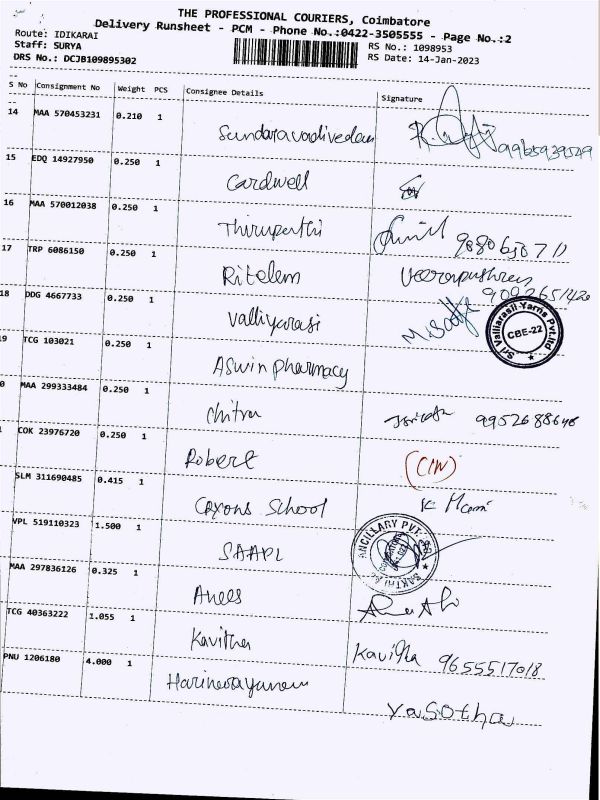 THE PROFESSIONAL COURIERS, Coimbatore
Delivery Runsheet - PCM - Phone No.:0422-3505555 - Page No.:2
Route: IDIKARAI
Staff: SURYA
DRS No.: DCJB109895302
RS No.: 1098953
RS Date: 14-Jan-2023
S No Consignment No Weight PCS Consignee Details Signature
14 MAA 570453231 0.210 1
Sundaravadivedau 9965939549
15 EDQ 14927950 0.250 1
Cardwell
16 MAA 570012038 0.250 1
Thirupathi
17 TRP 6086150 0.250 1
Ritelem
18 DDG 4667733 0.250 1
Valliyarasi
Sri Valliarasi Yarns Pvt.ltd
CBE-22
9 TCG 103021 0.250 1
Aswin pharmacy
0 MAA 299333484 0.250 1
Chitra
COK 23976720 0.250 1
Robert (CIW)
SLM 311690485 0.415 1
School
VPL 519110323 1.500 1
SAAPL
ANCILLARY PVT.
MAA 297836126 0.325 1
Anees
TCG 40363222 1.055 1
Kavitha
Kavitha 9655517018
PNU 1206180 4.000 1
Yasotha